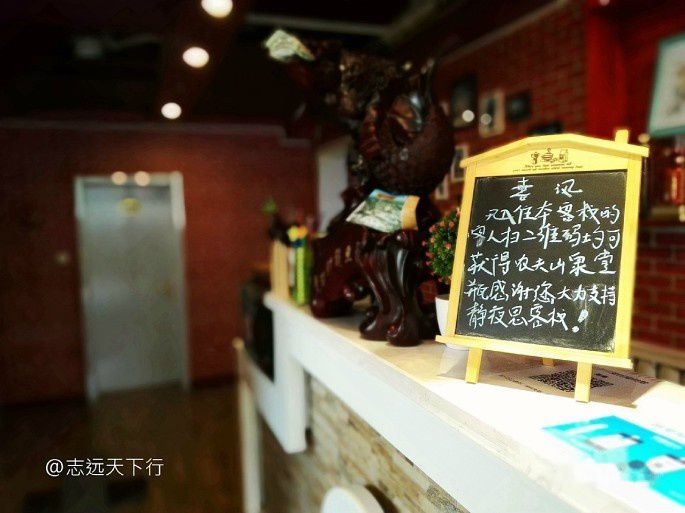 喜 凤
凡入住本客栈的
客人扫二维码均可
获得农夫山泉壹
瓶感谢您大力支持
静夜思客栈！
@志远天下行